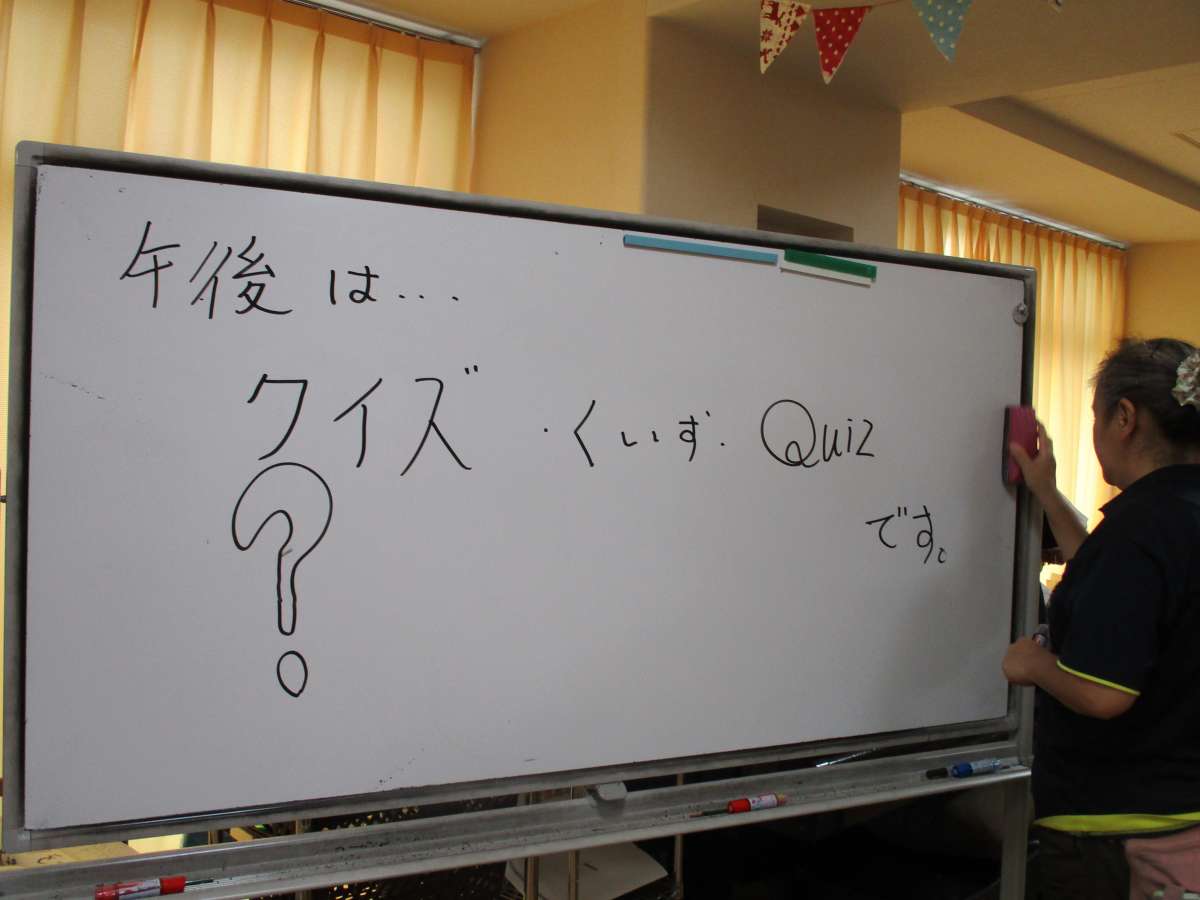 午後は...
クイズ・くいず・Quiz
?
です。